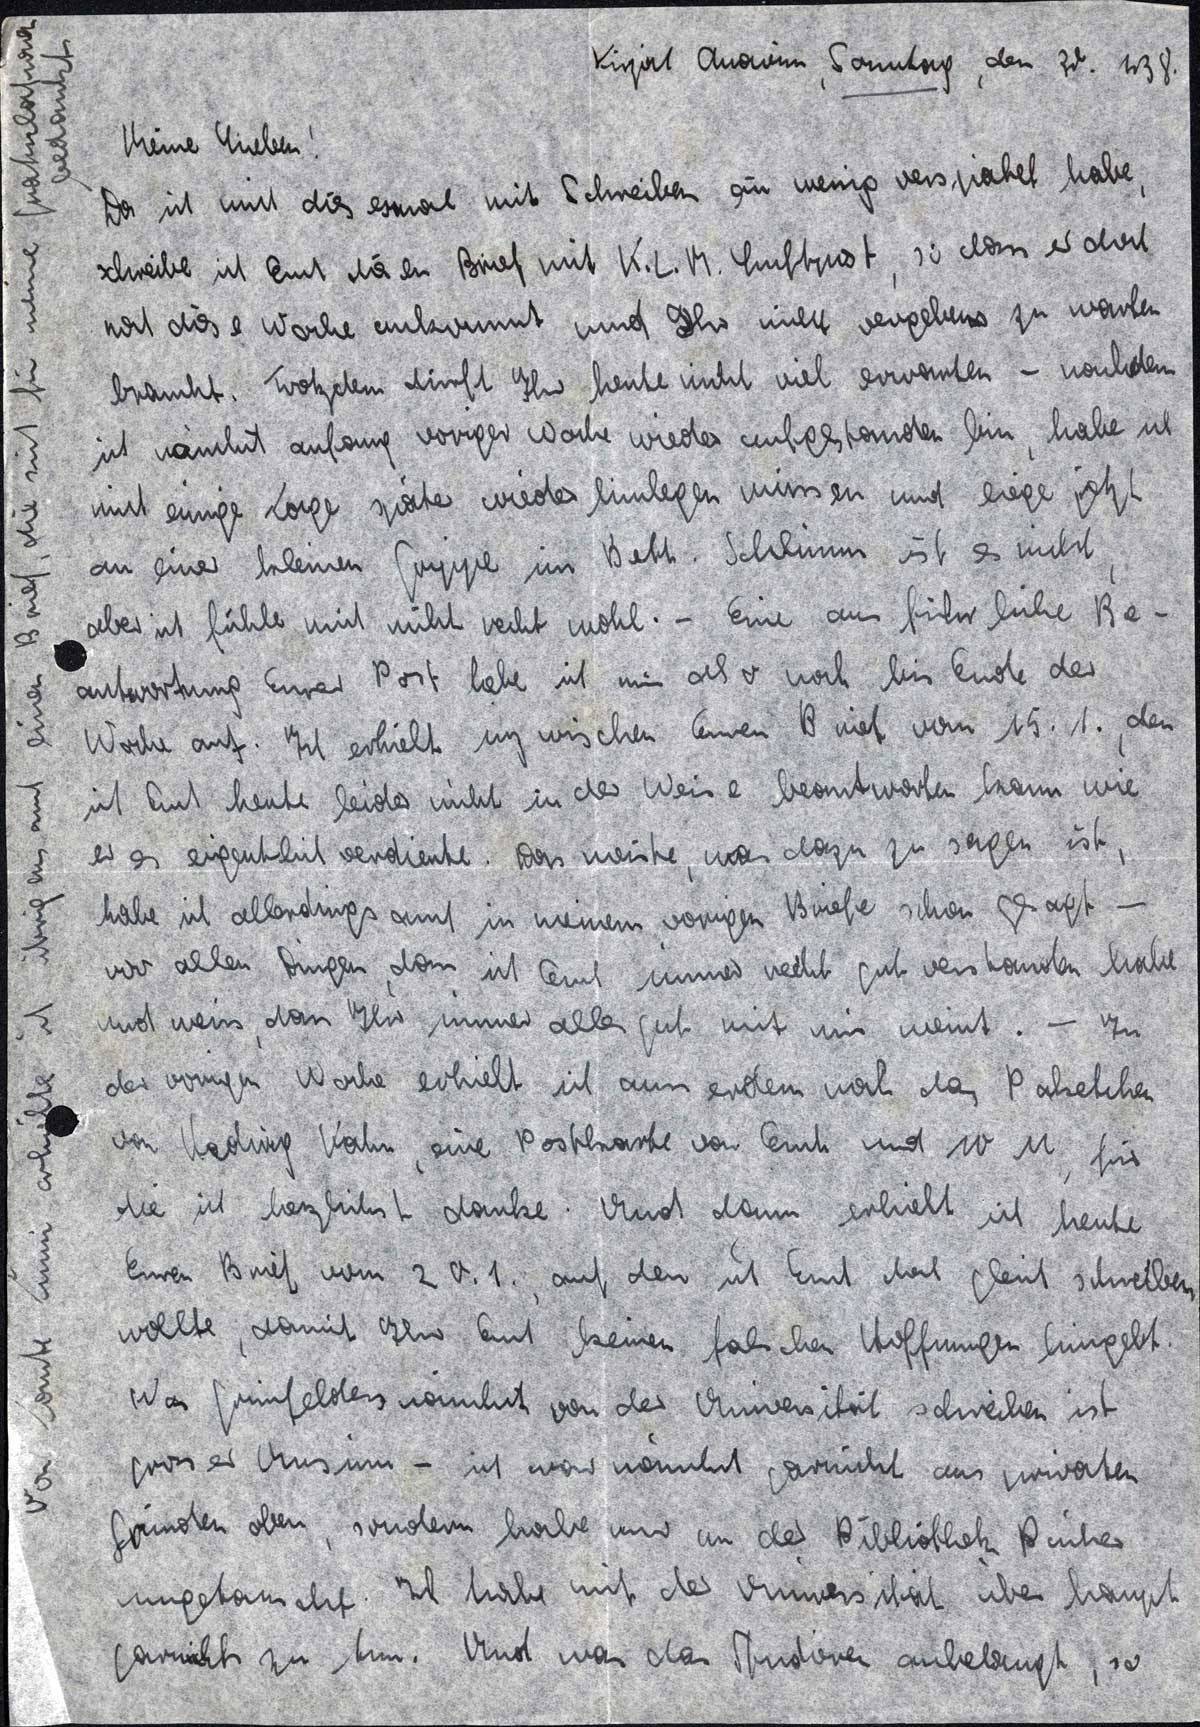 Kirjat Anavim, Sonntag, den 30. 1. 38.
Meine Lieben!
Da ich mich diesesmal mit Schreiben ein wenig verspätet habe,
schreibe ich Euch diesen Brief mit K.L.M. Luftpost, so dass er doch
noch diese Woche ankommt und Ihr nicht vergebens zu warten
braucht. Trotzdem dürft Ihr heute nicht viel erwarten – nachdem
ich nämlich anfang voriger Woche wieder aufgestanden bin, habe ich
mich einige Tage später wieder hinlegen müssen und liege jetzt
an einer kleinen Grippe im Bett. Schlimm ist es nicht,
aber ich fühle mich nicht recht wohl. – Eine ausführliche Be-
antwortung Eurer Post hebe ich mir also noch bis Ende der
Woche auf. Ich erhielt inzwischen Euren Brief vom 15. 1., den
ich Euch heute leider nicht in der Weise beantworten kann wie
er es eigentlich verdiente. Das meiste, was dazu zu sagen ist,
habe ich allerdings auch in meinem vorigen Briefe schon gesagt –
vor allen Dingen, dass ich Euch immer recht gut verstanden habe
und weiss, dass Ihr immer alles gut mit mir meint. – In
der vorigen Woche erhielt ich ausserdem noch das Paketchen
von Hedwig Kahn, eine Postkarte von Euch und 10 M, für
die ich herzlichst danke. Und dann erhielt ich heute
Euren Brief vom 20. 1., auf den ich Euch doch gleich schreiben
wollte, damit Ihr Euch keinen falschen Hoffnungen hingebt.
Was Grünfelders nämlich von der Universität schreiben ist
grosser Unsinn – ich war nämlich garnicht aus privaten
Gründen oben, sondern habe nur in der Bibliothek Bücher
umgetauscht. Ich habe mit der Universität überhaupt
garnichts zu tun. Und was das Studieren anbelangt, so
Von Tante Anni erhielt ich übrigens auch einen Brief, die sich für meine Gratulation
bedankt.